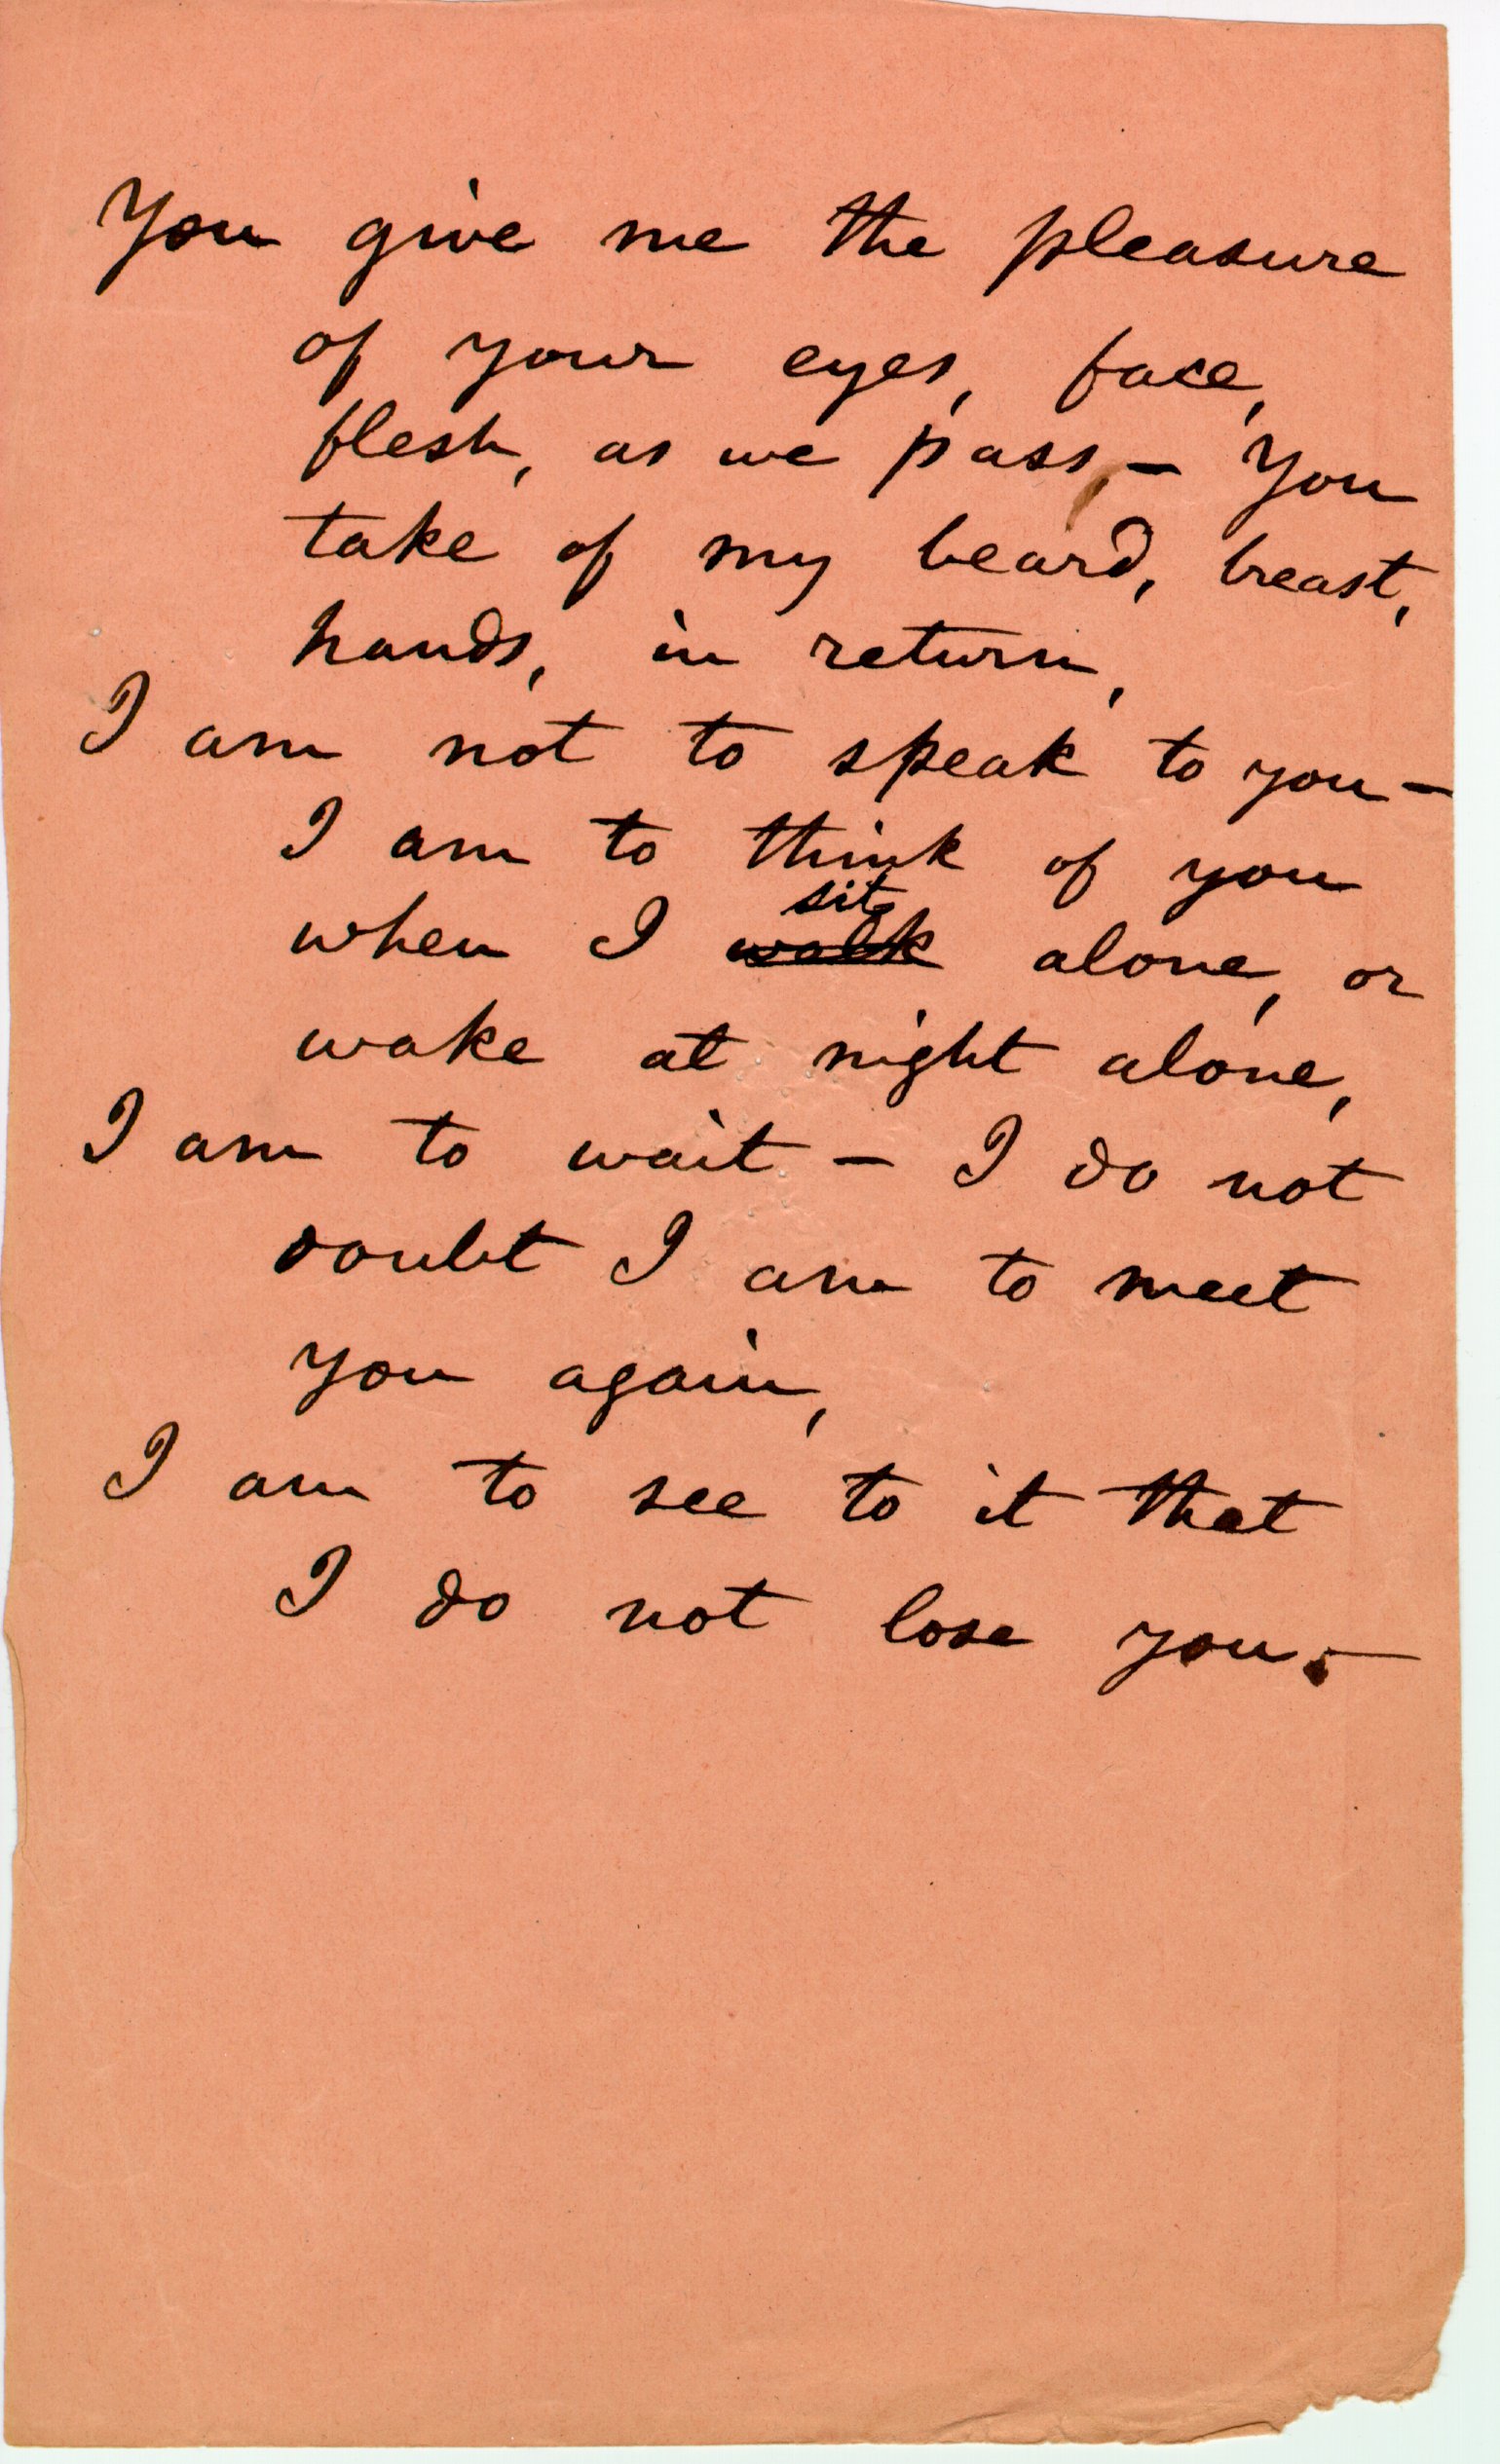 You give me the pleasure
of your eyes, face,
flesh, as we pass, — You
take of my beard, breast,
hands, in return,
I am not to speak to you —
I am to think of you
sit
when I walk alone, or
wake at night alone,
I am to wait — I do not
doubt I am to meet
you again,
I am to see to it that
I do not lose you. —